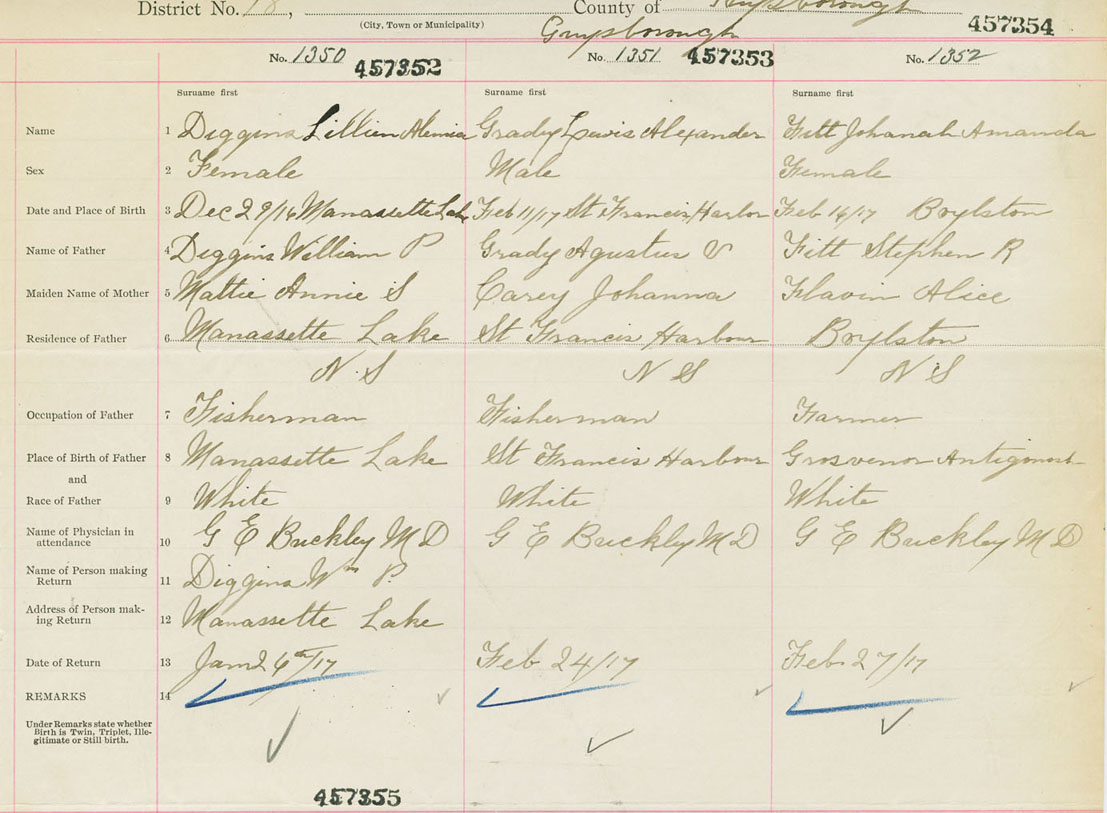 District No. 18, County of Guysborough
(City, Town or Municipality)
Guysborough
457354
No. 1350 457352 No. 1351 457353 No. 1352
Surname first Surname first Surname first
Name 1 Diggins Lillien Grady Lewis Alexander Fitt Johanah Amanda
Sex 2 Female Male Female
Date and Place of Birth 3 Dec 29/16 Manassette Lake Feb 11/17 St Francis Harbor Feb 16/17 Boylston
Name of Father 4 Diggins William P Grady Agustus Fitt Stephen R
Maiden Name of Mother 5 Mattie Annie S Carey Johanna Flavin Alice
Residence of Father 6 Manassette Lake St Francis Harbour Boylston
N.S N S N.S
Occupation of Father 7 Fisherman Fisherman Farmer
Place of Birth of Father 8 Manassette Lake St Francis Harbour Grosvenor
and
Race of Father 9 White White White
Name of Physician in
attendance 10 G E Buckley M D G E Buckley M D G E Buckley M D
Name of Person making
Return 11 Diggins Wm P.
Address of Person mak-
ing Return 12 Manassette Lake
Date of Return 13 Jan 26th/17 Feb 24/17 Feb 27/17
REMARKS 14
Under Remarks state whether
Birth is Twin, Triplet, Ille-
gitimate or Still birth.
457355